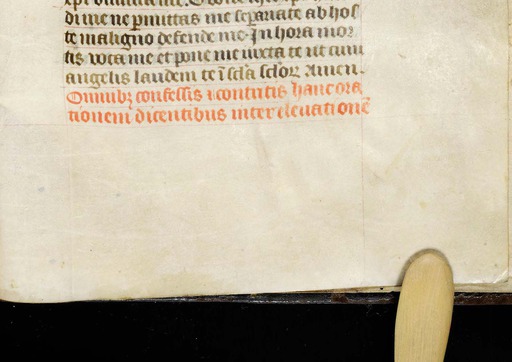 di me ne ꝑmittas me sepārate ab hos
te maligno defende me. In hora mor
tis voca me et pone me iuxta te ut cum
angelis laudem te ī scl̄a scl̄oꝝ Amen.
Omnibꝫ confessis ⁊ contritis hanc ora
tionem dicentibus inter eleuationē